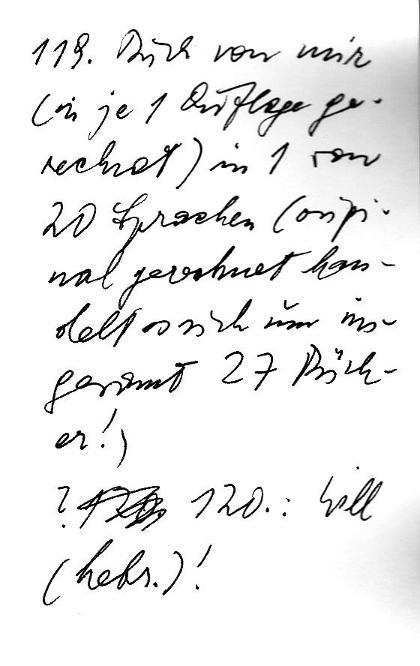 119. Buch von mir
(in je 1 Auflage ge-
rechnet) in 1 von
20 Sprachen (origi-
nal gerechnet han-
delt es sich um ins-
gesamt 27 Büch-
er!)
? 120.: Will
(hebr.)!